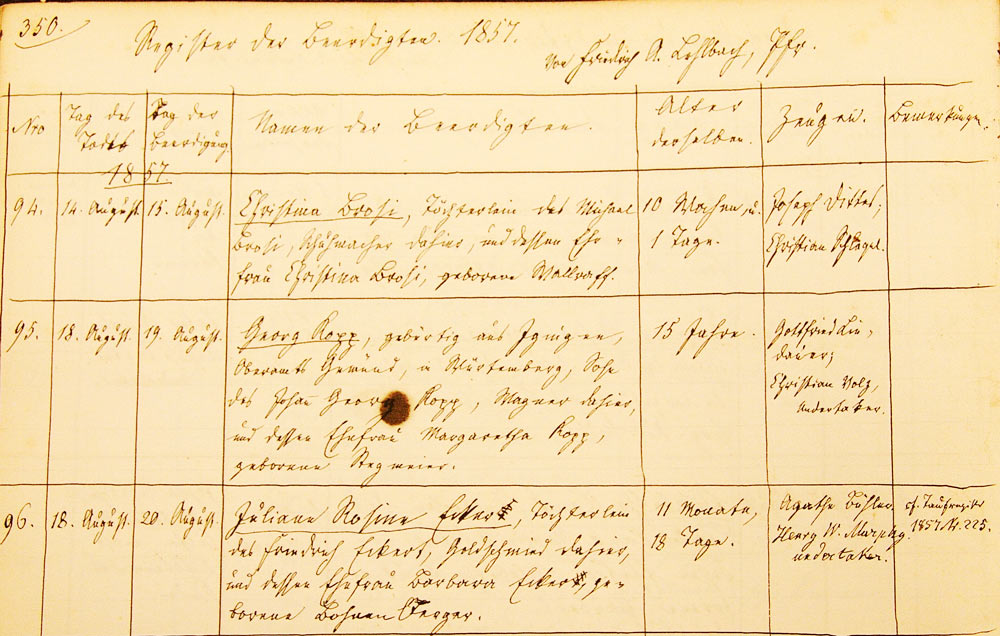 350.
Register der Beerdigten. 1857.
von Friedrich A. Lehlbach, Pfr.
Nro
Tag des
Todes
Tag der
Beerdigung.
Namen der Beerdigten.
Alter
derselben.
Zeugen.
Bemerkungen.
1857.
94.
14. August.
15. August.
Christina Brosi, Töchterlein des Michael
Brosi, Schuhmacher dahier, und dessen Ehe-
frau Christina Brosi, geborene Wallraff.
10 Wochen, u.
1 Tage.
Joseph Dittes;
Christian Schlegel.
95.
18. August.
19. August.
Georg Kopp, gebürtig aus Iggingen,
Oberamts Gmünd, in Würtemberg, Sohn
des Johann Georg Kopp, Wagner dahier,
und dessen Ehefrau Margaretha Kopp,
geborene Stegmeier.
15 Jahre.
Gottfried Lin-
dauer;
Christian Volz,
Undertaker.
96.
18. August.
20. August.
Juliane Rosine Eckert, Töchterlein
des Friedrich Eckert, Goldschmied dahier,
und dessen Ehefrau Barbara Eckert, ge-
borene Bohnenberger.
11 Monate,
18 Tage.
Agathe Bühler
Henry W. Murphy.
undertaker.
cf. Taufregister
1857. Nr. 225.